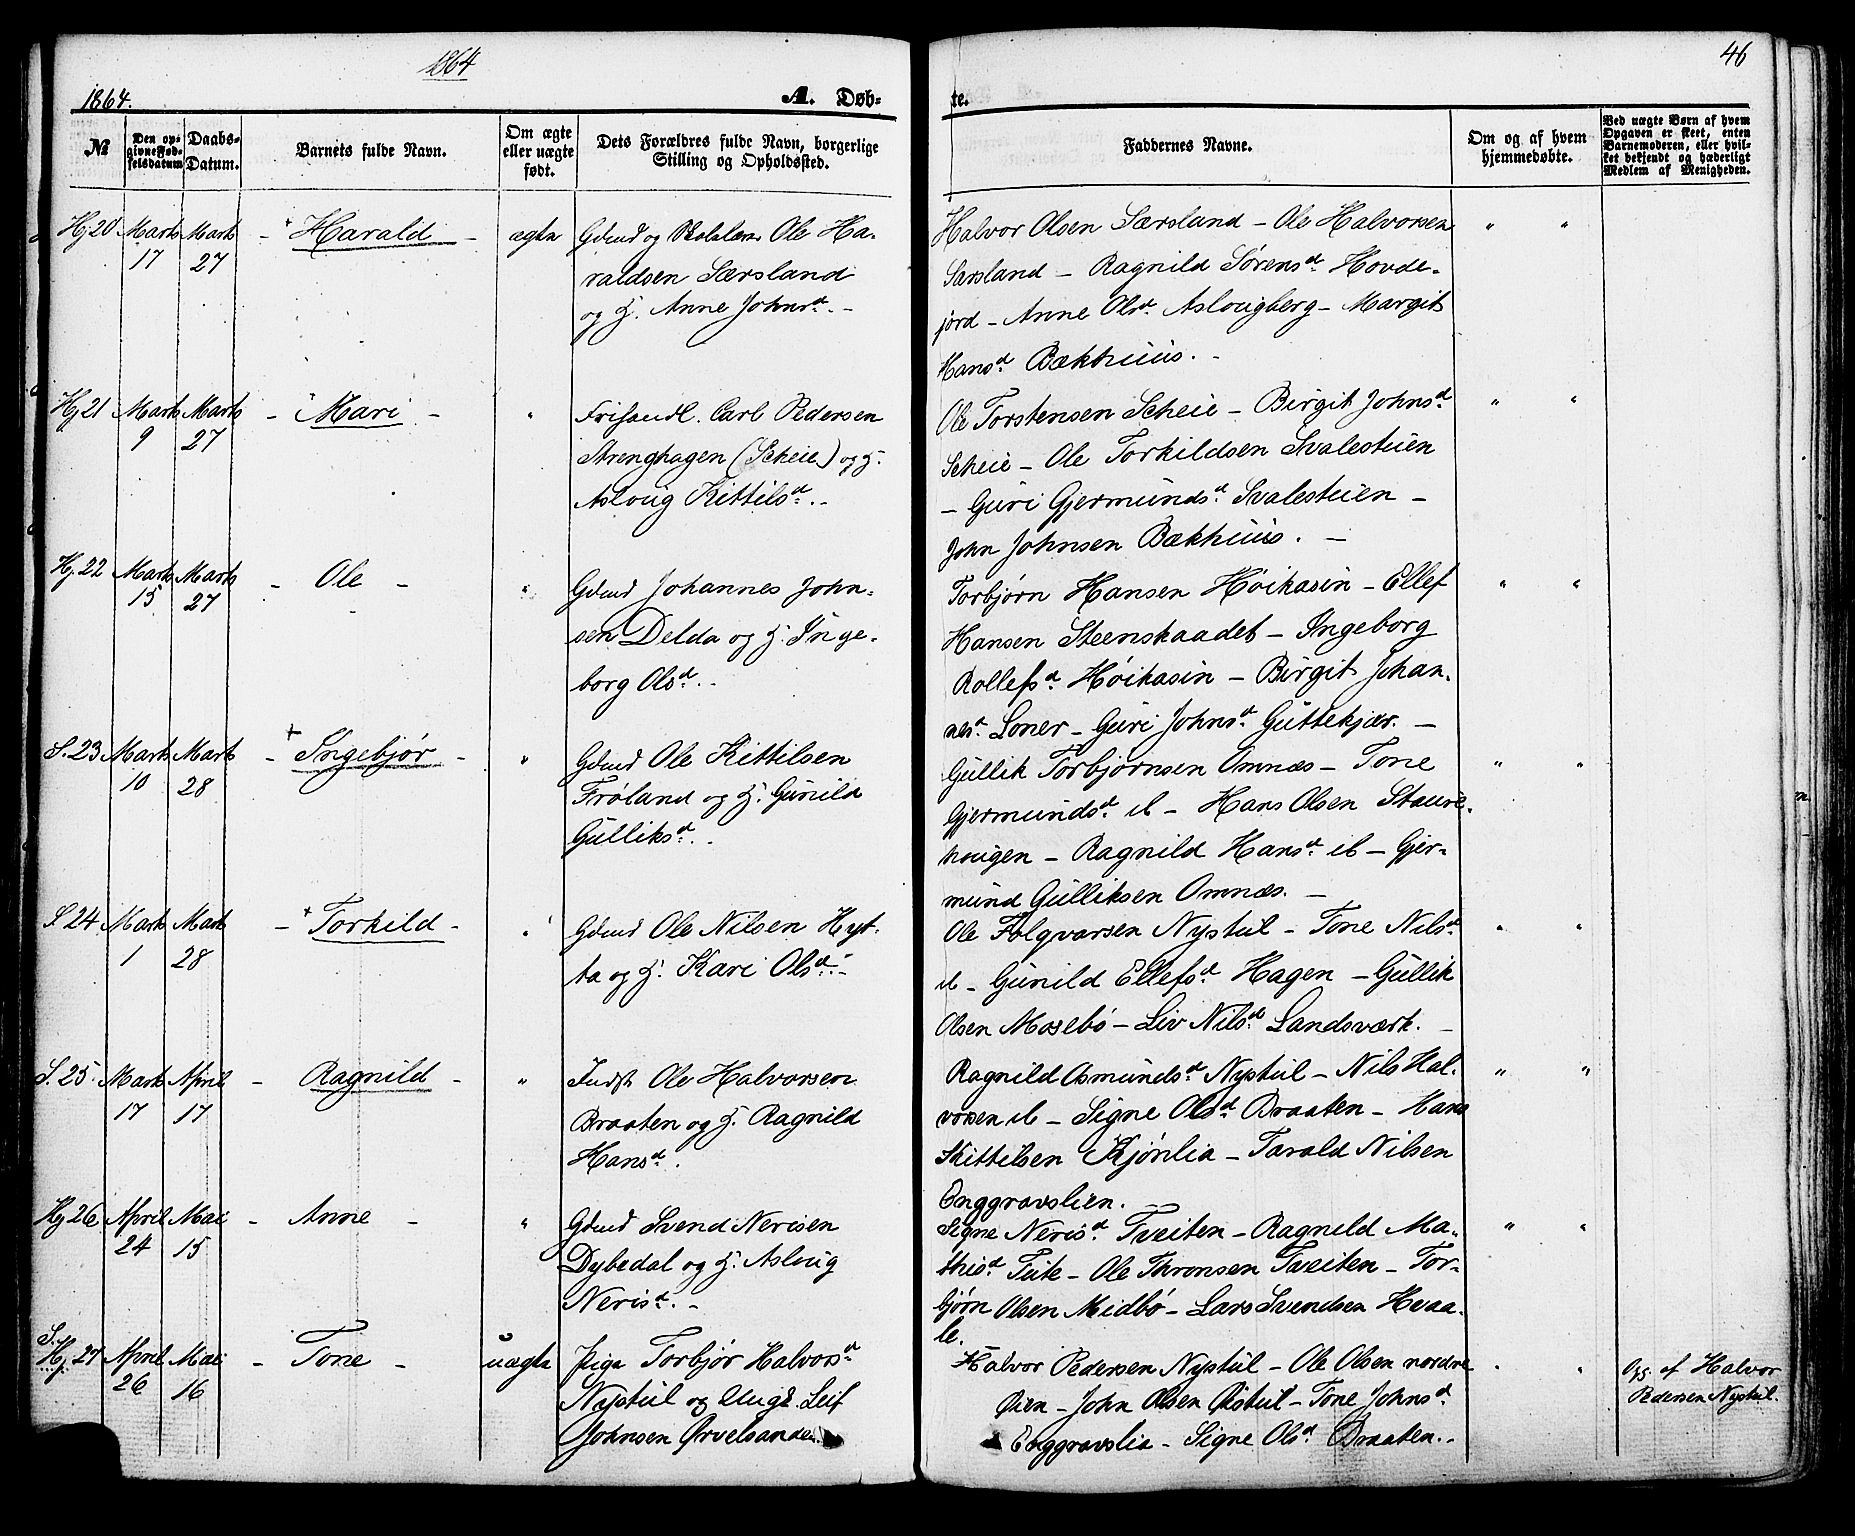 1864
46
1864.
A. Døb-
te.
№
Den op-
givne Fød-
selsdatum
Daabs-
Datum.
Barnets fulde Navn.
Om ægte
eller uægte
født.
Dets Forældres fulde Navn, borgerlige
Stilling og Opholdssted.
Faddernes Navne.
Om og af hvem
hjemmedøbte.
Ved uægte Børn af hvem
Opgaven er skeet, enten
Barnemoderen, eller hvil-
ket bekjendt og hæderligt
Medlem af Menigheden.
Hj 20 Marts Marts - + Harald - ægte
17 27
Gdmd og Skolelær. Ole Ha-
raldsen Særsland
og H. Anne Johnsd. -
Halvor Olsen Særsland - Ole Halvorsen " "
Særsland - Ragnild Sørensd. Hovde-
jord - Anne Olsd. Aslougberg - Margit
Hansd. Bækhuus. -
Hj 21 Marts Marts - Mari - "
9 27
Carl Pedersen
Strenghagen (Scheie) og H.
Asloug Kittilsd. -
Ole Torstensen Scheie - Birgit Johnsd. " "
Scheie - Ole Torkildsen Svalestuen
- Guri Gjermundsd. Svalestuen -
John Johnsen Bækhuus. -
Hj. 22 Marts Marts - Ole - "
15 27
Gdmd Johannes John-
sen Delda og H. Inge-
borg Olsd. -
Torbjørn Hansen Høikasin - Ellef " "
Hansen Steenskaadet - Ingeborg
Rollefsd. Høikasin - Birgit Johan-
nesd. Loner - Guri Johnsd. Guttekjær. -
S. 23 Marts Marts - + Ingebjør - "
10 28
Gdmd Ole Kittilsen
Frøland og H. Gunild
Gulliksd. -
Gullik Torbjørnsen Omnæs - Tone " "
Gjermundsd. ib - Hans Olsen Staure-
hougen - Ragnild Hansd. ib - Gjer-
mund Gulliksen Omnæs. -
S. 24 Marts Marts - + Torkild - "
1 28
Gdmd Ole Nilsen Hyt-
ta og H. Kari Olsd. -
Ole Folqvarsen Nystul - Tone Nilsd. " "
ib - Gunild Ellefsd. Hagen - Gullik
Olsen Mosebø - Liv Nilsd. Landsværk. -
S. 25 Marts April - Ragnild - "
17 17
Indst Ole Halvorsen
Braaten og H. Ragnild
Hansd.
Ragnild Asmundsd. Nystul - Nils Hal- " "
vorsen ib - Signe Olsd. Braaten - Hans
Kittilsen Kjønlia - Tarald Nilsen
Enggravslien.
Hj 26 April Mai - Anne - "
24 15
Gdmd Svend Nerisen
Dybedal og H. Asloug
Nerisd. -
Signe Nerisd. Tveiten - Ragnild Ma- " "
thisd. Tute - Ole Thronsen Tveiten - Tor-
bjørn Olsen Midbø - Lars Svendsen Hvaa-
le.
S.
Hj. 27 April Mai - Tone - uægte
26 16
Pige Torbjør Halvorsd.
Nystul og Ungk. Leif
Johnsen Ørvelsanden
Halvor Pedersen Nystul - Ole Olsen nordre " "
Øien - John Olsen Østul - Tone Johnsd.
Enggravslia - Signe Olsd. Braaten. -
Opg. af Halvor
Pedersen Nystul.